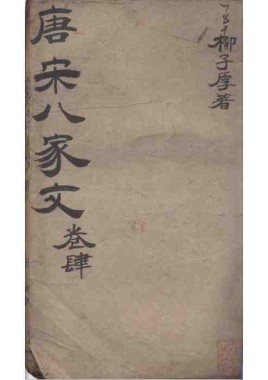 柳子厚著
唐宋八家文
卷肆